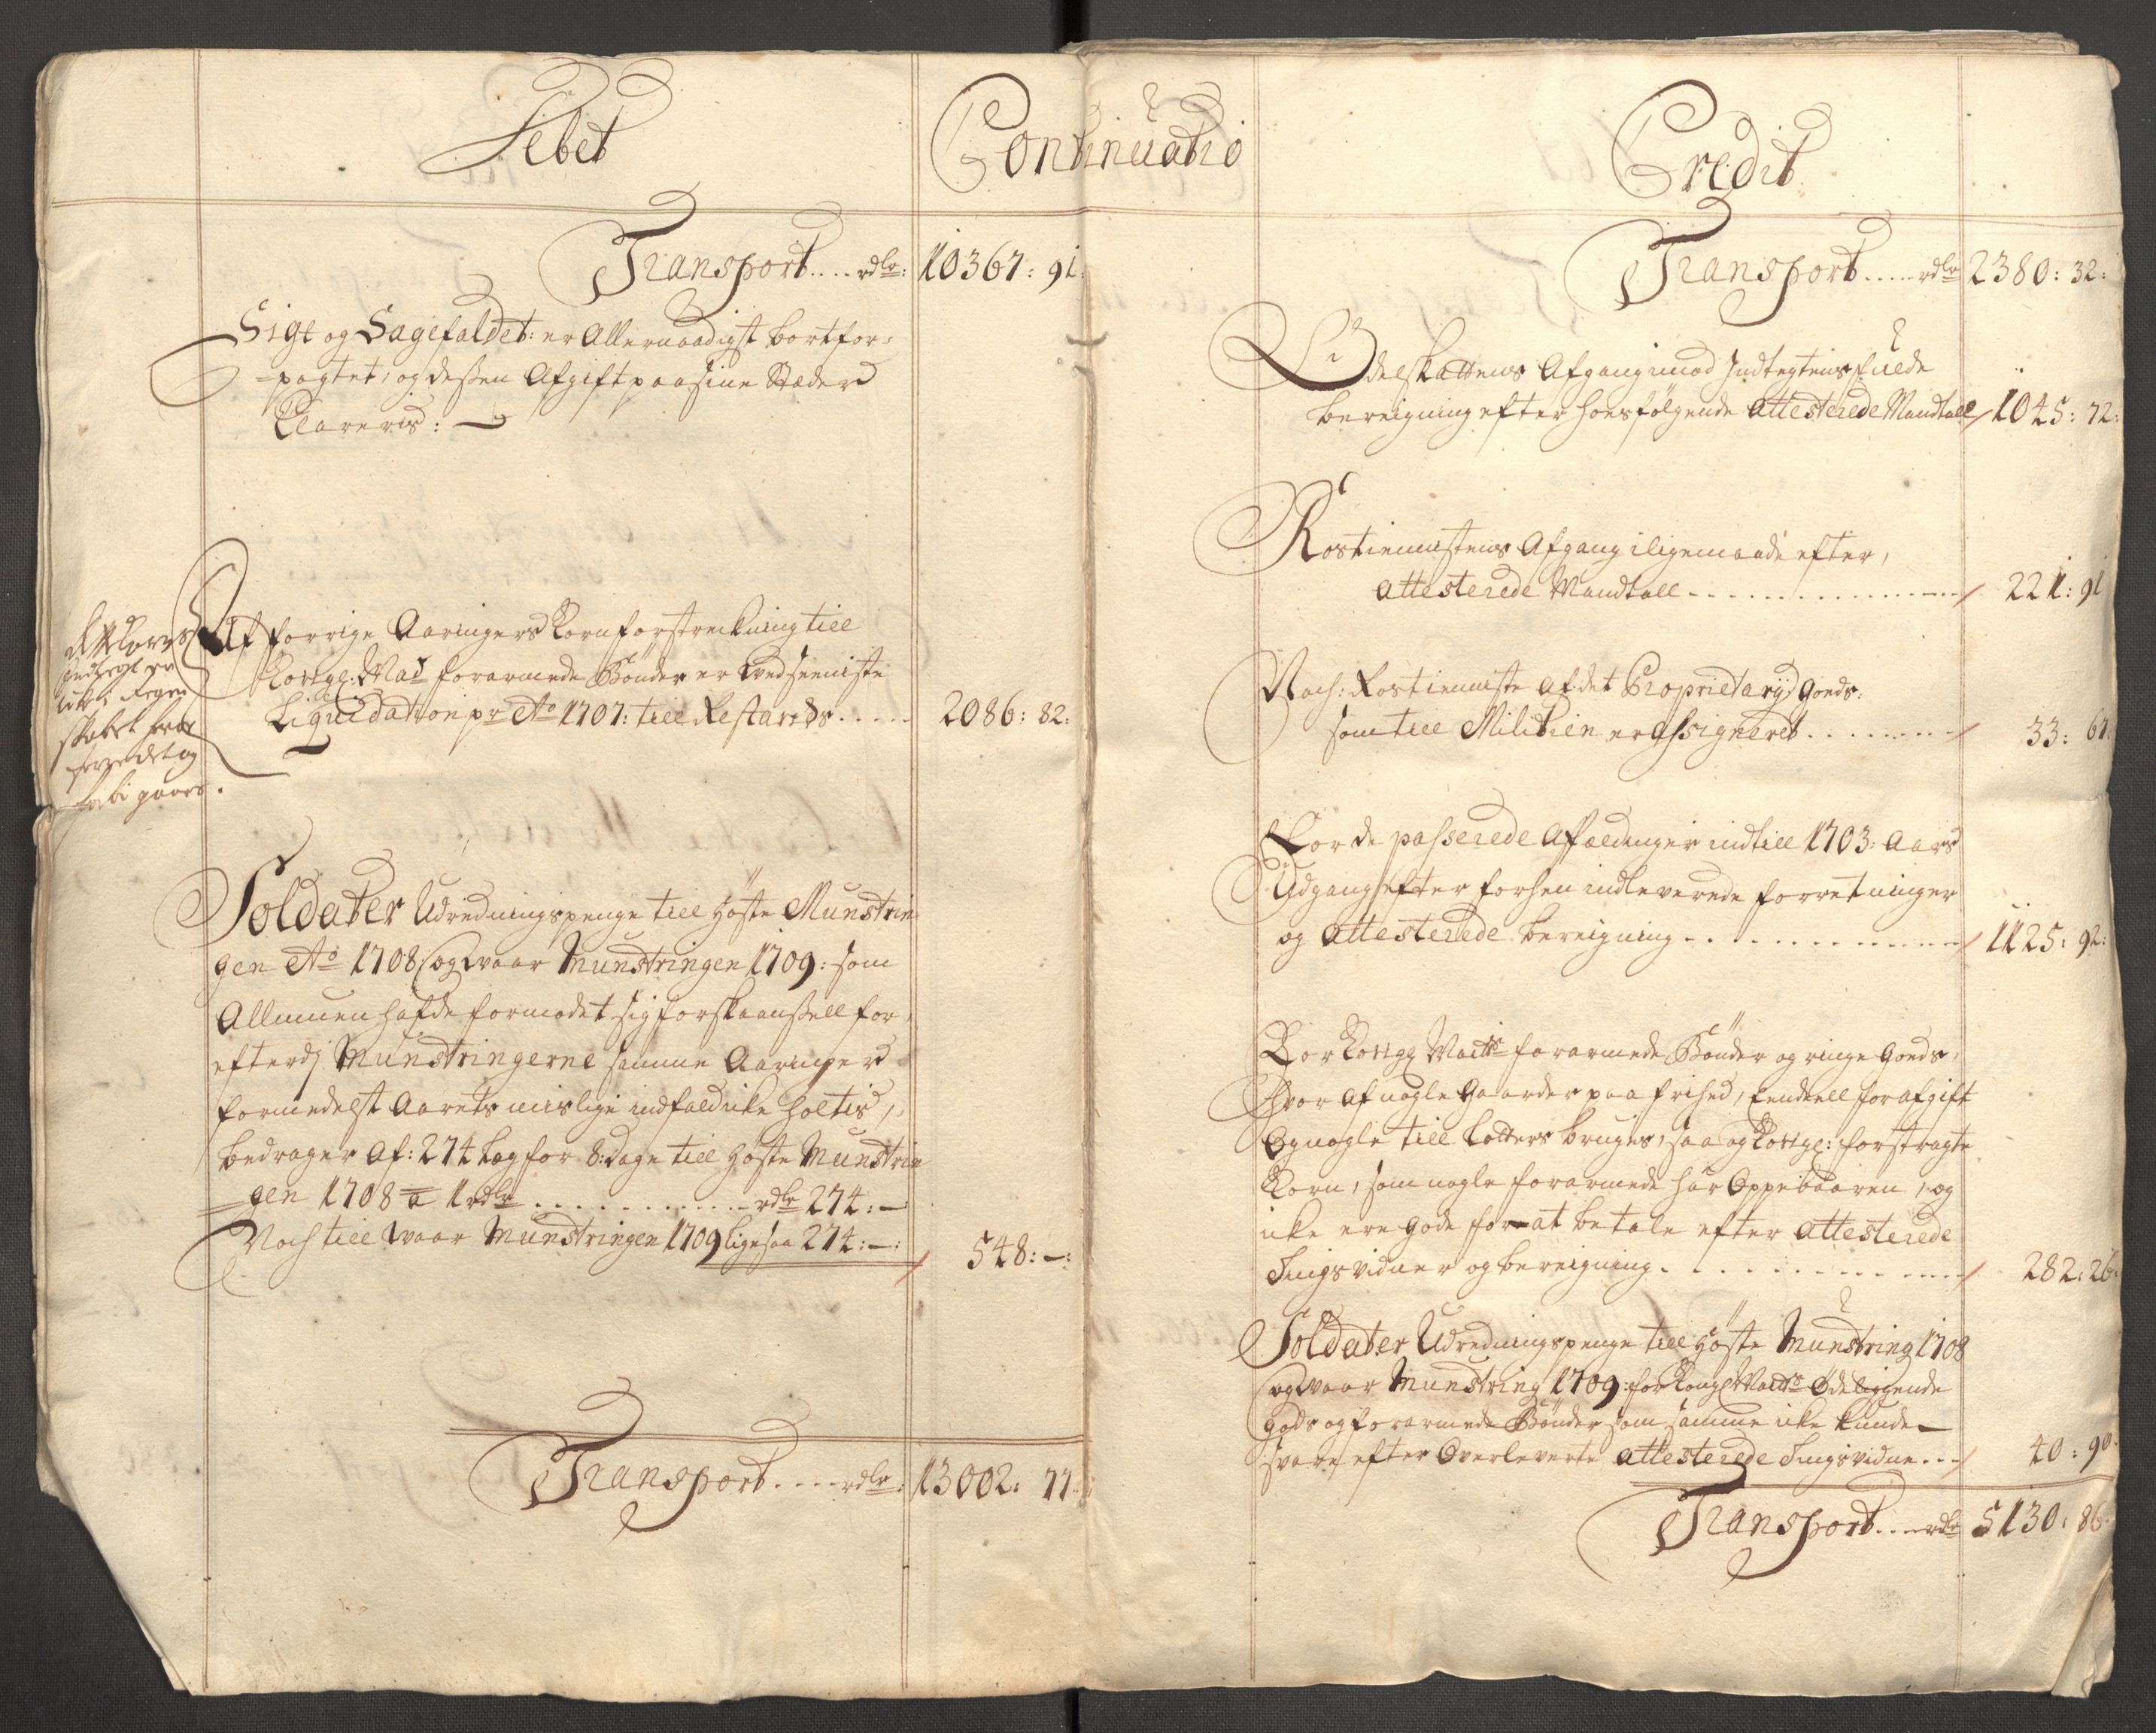 Debet
Continuatio
Transport.... rdlr: 10367: 91:
Sigt og Sagefaldet: er Allernaadigst bortfor-
pagtet, og dessen Afgift paa sine Stæder
Clareris:
Af forrige Aaringers Kornforstreckning till
Kongl: Mas forarmede Bønder er ved seeniste
Liquidation pr Ao 1707: till Restanz ..... 2086: 82:
skabet
Soldater Udredningspenge till Høste Munstrin
gen Ao 1708 og Vaar Munstringen 1709: som
Allmuen hafde formodet sig forskaansell for,
efterdj Munstringerne samme Aaringer
formedelst Aarets mislige indfald icke holtis,
bedrager Af: 274 Læg for 8: Dage till Høste Munstrin
gen 1708 a 1 rdlr .......... rdlr 274: -
Noch till Vaar Munstringen 1709 ligesaa 274: -: 548: -:
Transport.... rdlr: 13002: 77:
Credit
Transport.... rdlr 2380: 32:
Odelskattens Afgang imod Indtegtens fulde
bereigning efter hoesfølgende Attesterede Mandtall 1045: 72:
Rostienistens Afgang iligemaade efter,
Attesterede Mandtall ............ 221: 91
Noch: Rostieniste Af det Proprietarij Goeds
som till Militien er Assigneret ........ 33: 61.
For de passerede Affældinger indtill 1703: Aars
Udgang efter forhen indleverede forretninger
og Attesterede bereigning ............ 1125: 92:
For Kongl Maits forarmede Bønder og ringe Goeds,
hvor Af nogle Gaarder paa frihed, Eendeell for afgift
Og nogle till Lotters bruges, saa og Kongl: forstragte
Korn, som nogle forarmede har Oppebaaren, og
icke ere gode for at betale efter Attesterede
Tingsvidner og bereigning ........... 282: 26:
Soldater Udredningspenge till Høste Munstring 1708
og Vaar Munstring 1709: for Kongl Maits Ødeliggende
gods og forarmede Bønder som samme icke kunde
svare efter Overleverte Attesterede Tingsvidne ... 40: 90.
Transport.... rdlr 5130: 86: